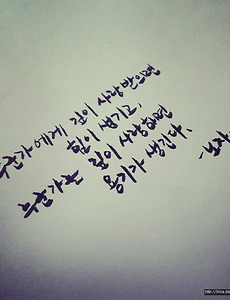 누군가에게 깊이 사랑받으면
힘이 생기고,
누군가를 깊이 사랑하면
용기가 생긴다.
-노자